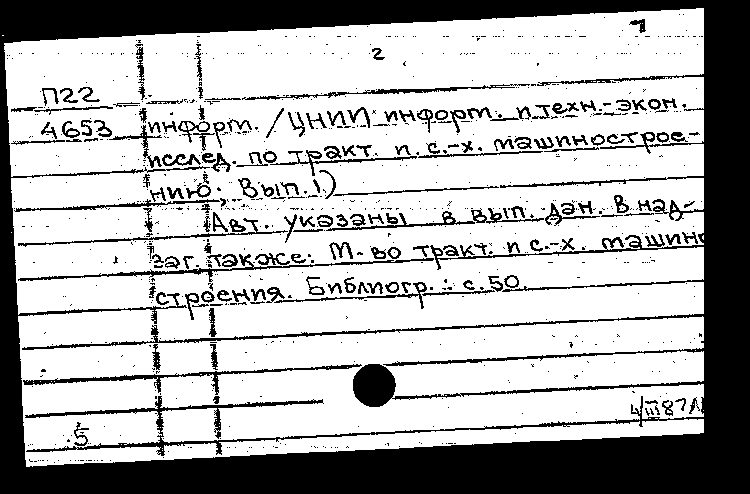 7
2
П22
4653 информ. / ЦНИИ информ. и техн.-экон.
исслед. по тракт. и с.-х. машинострое-
нию; Вып. 1)
Авт. указаны в вып. дан. В над-
заг. также: М-во тракт. и с.-х. машино
строения. Библиогр.: с. 50.
4/III87
5